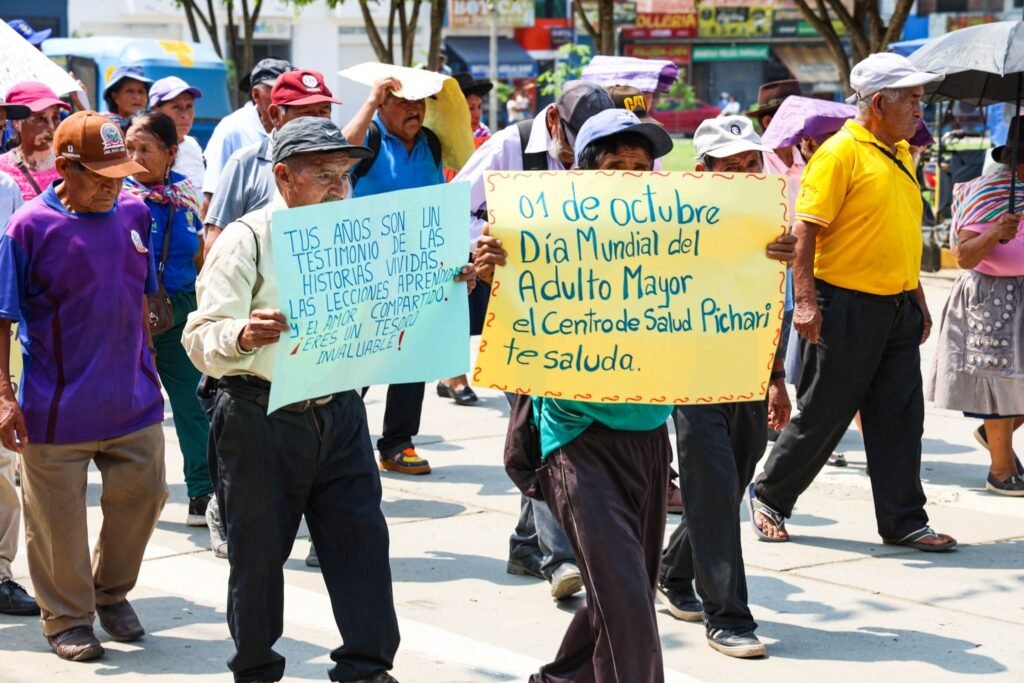 TUS AÑOS SON UN
TESTIMONIO DE LAS
HISTORIAS VIVIDAS,
LAS LECCIONES APRENDIDAS
Y EL AMOR COMPARTIDO.
¡ERES UN TESORO
INVALUABLE!
01 de octubre
Día Mundial del
Adulto Mayor
el Centro de Salud Pichari
te saluda.
CAT